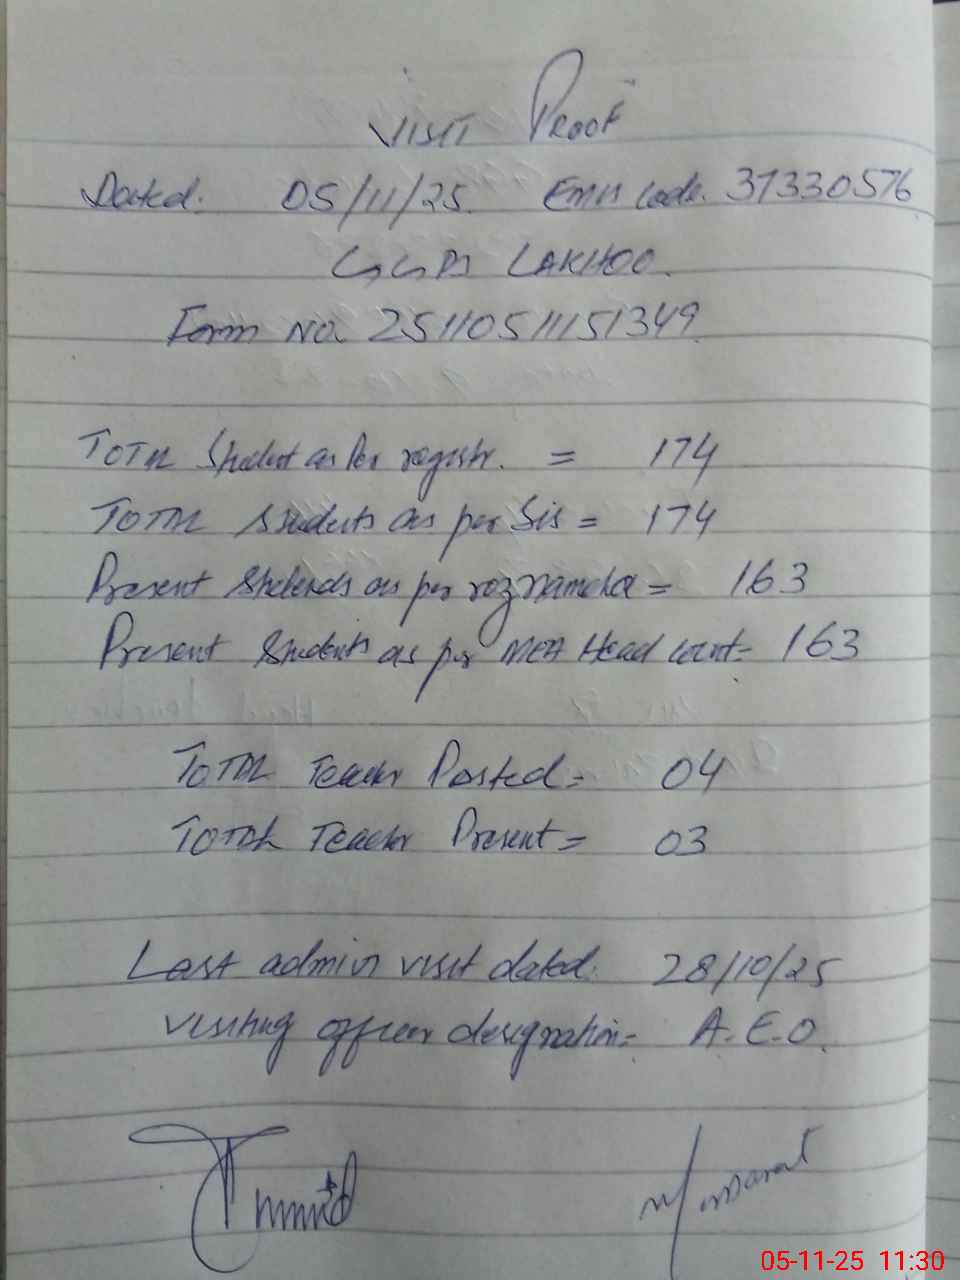 VISIT PROOF
Dated: 05/11/25 Emis code. 37330576
GGPS LAKHOO.
Form No. 25110511151349
TOTAL Student as Per registr. = 174
TOTAL Students as per Sis = 174
Present Students as per roznamcha = 163
Present Students as per MEA Head count= 163
TOTAL Teacher Posted= 04
TOTAL Teacher Present= 03
Last admin visit dated: 28/10/25
Visiting officer designation= A.E.O.
05-11-25 11:30